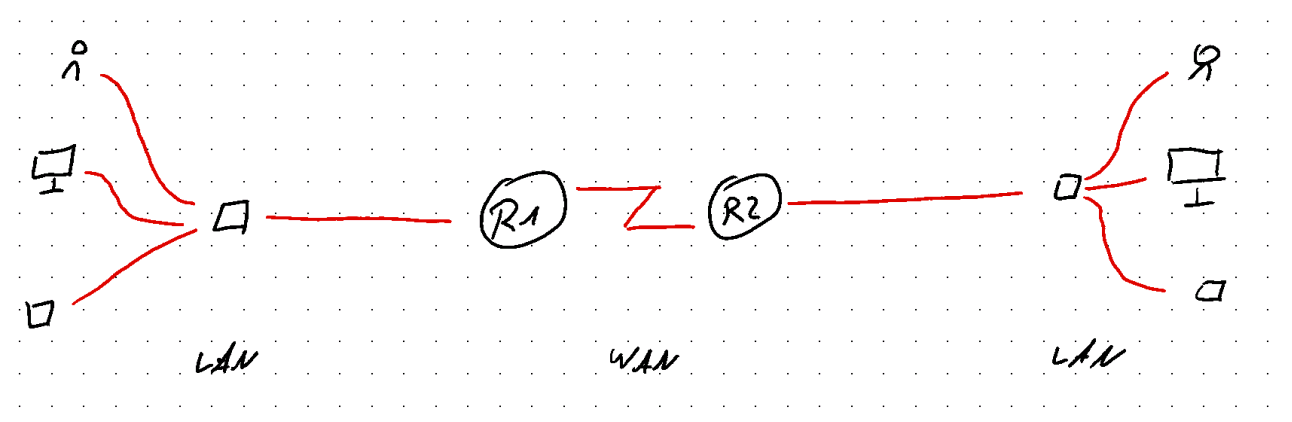 R1
R2
LAN
WAN
LAN